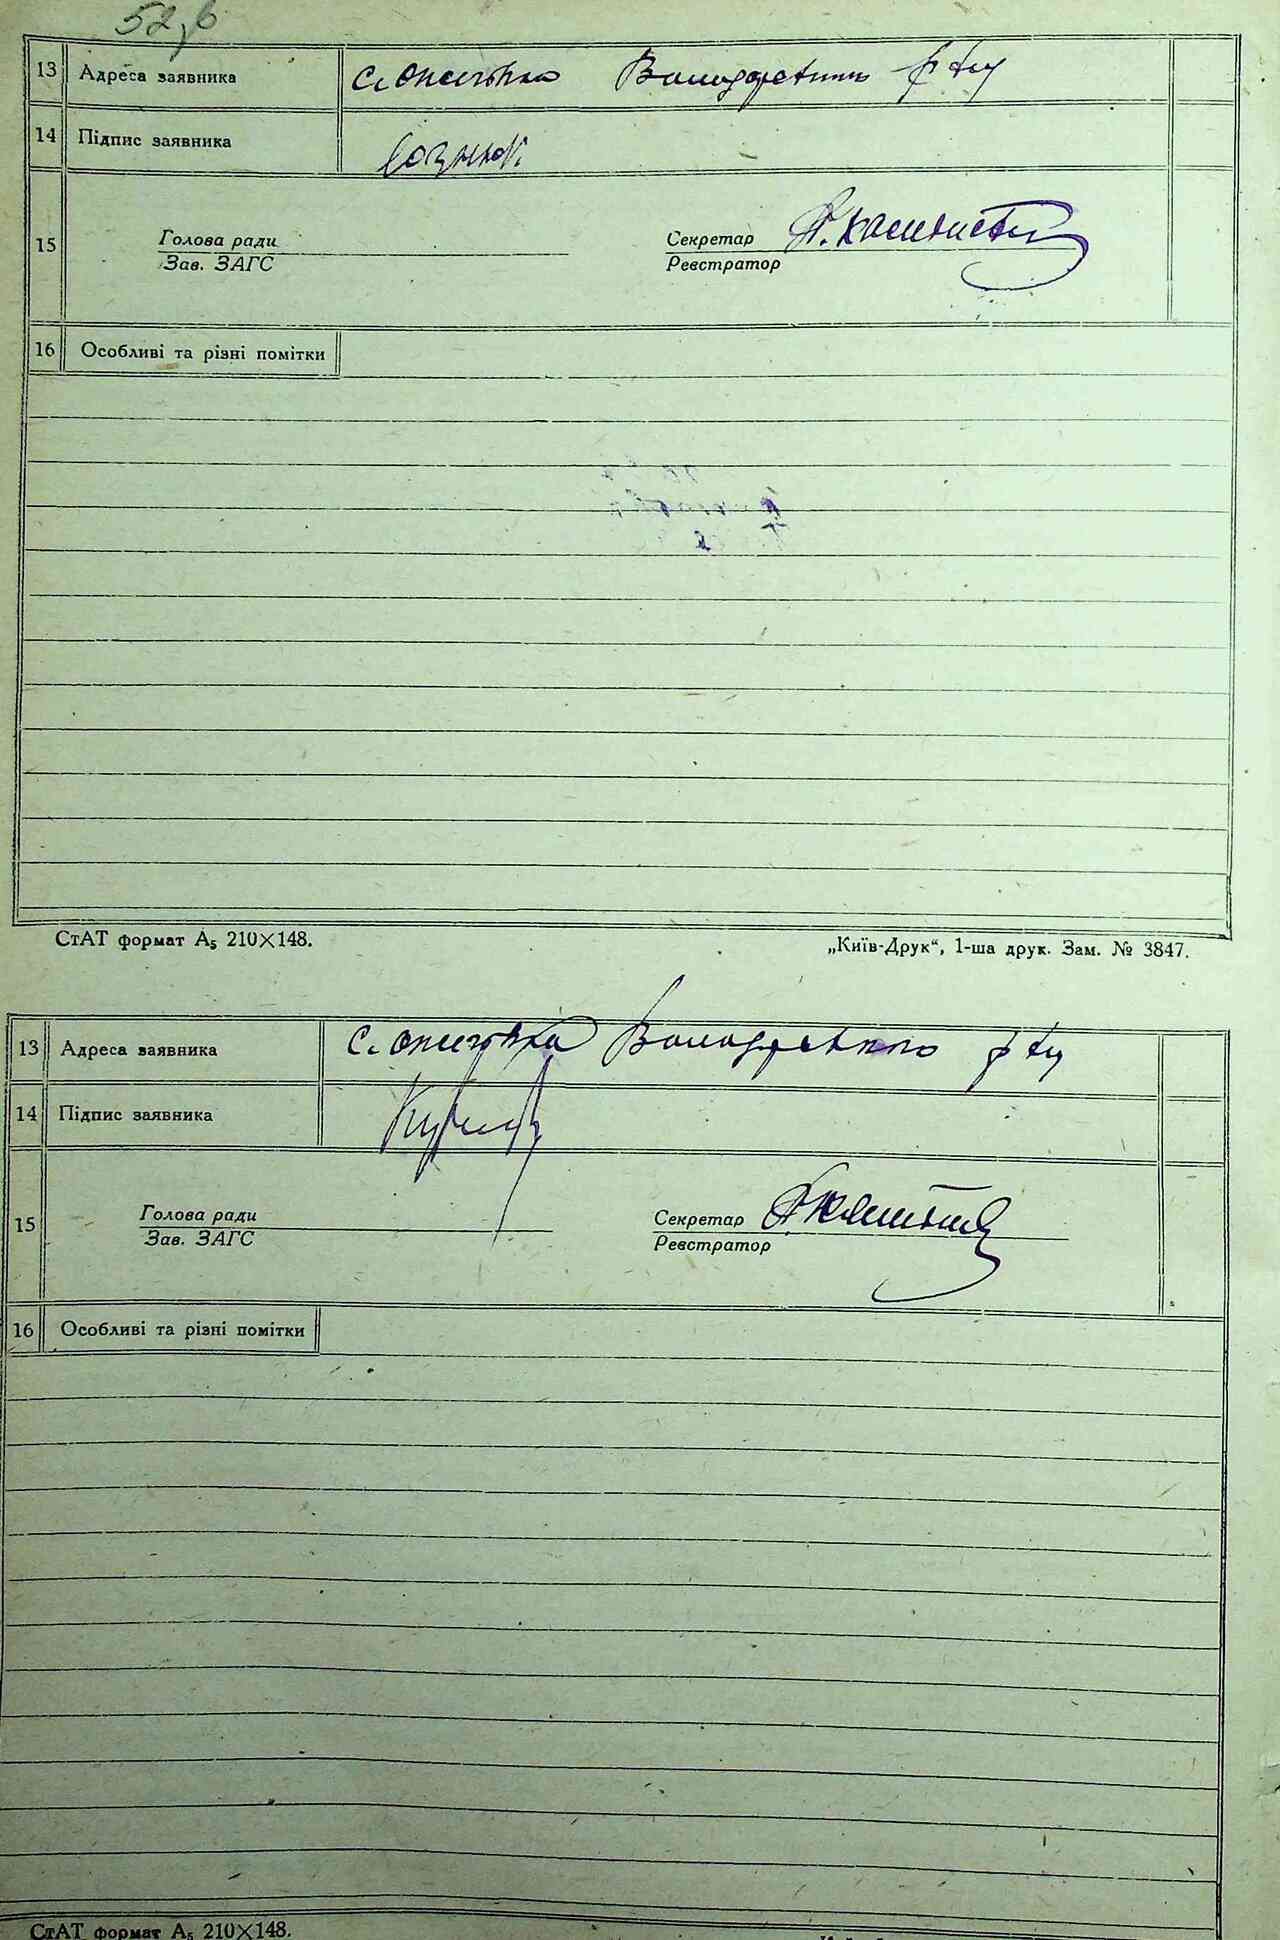 52, в
13 Адреса заявника с. Ожегівка Володарського р-ну
14 Підпис заявника
15 Голова ради Секретар
Зав. ЗАГС Реєстратор
16 Особливі та різні помітки
СтАТ формат А₅ 210×148. „Київ-Друк“, 1-ша друк. Зам. № 3847.
13 Адреса заявника с. Ожегівка Володарського р-ну
14 Підпис заявника
15 Голова ради Секретар
Зав. ЗАГС Реєстратор
16 Особливі та різні помітки
СтАТ формат А₅ 210×148.